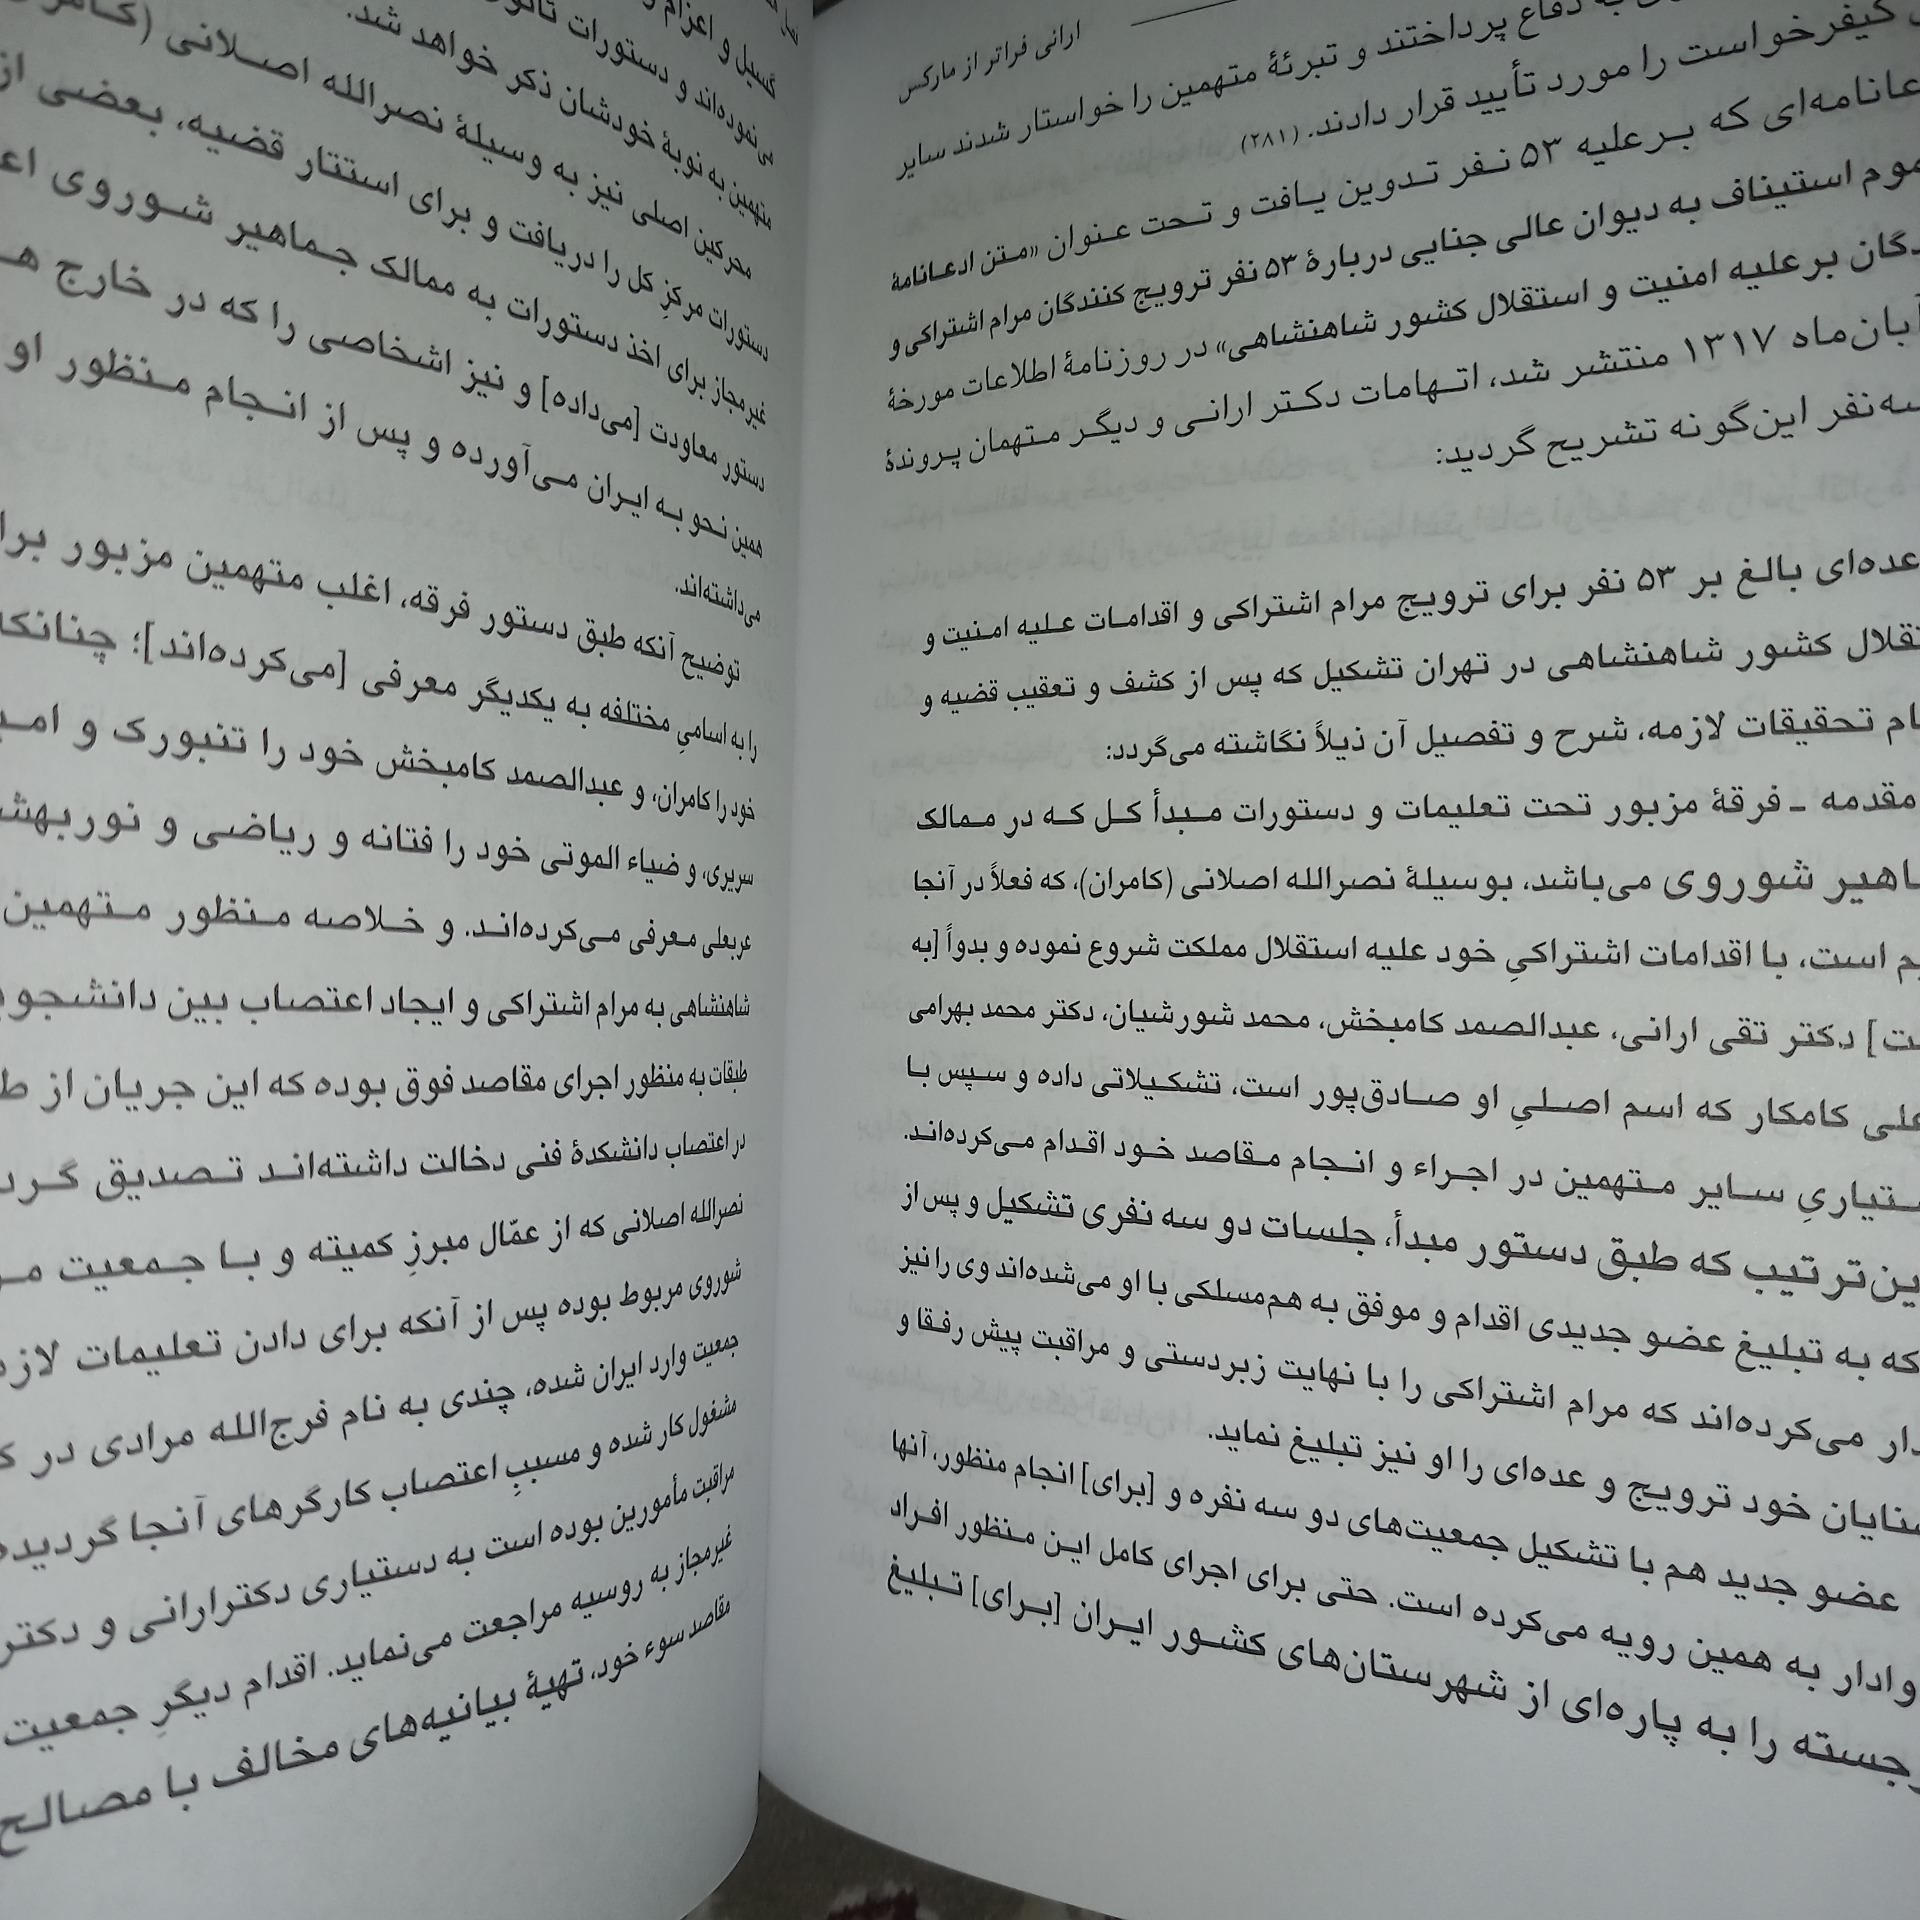 ارانی فراتر از مارکس
به دفاع پرداختند و تبرئهٔ متهمین را خواستار شدند سایر
کیفرخواست را مورد تأیید قرار دادند. (۲۸۱)
عانامه‌ای که برعلیه ۵۳ نفر تدوین یافت و تحت عنوان «متن ادعانامهٔ
موم استیناف به دیوان عالی جنایی دربارهٔ ۵۳ نفر ترویج کنندگان مرام اشتراکی و
دگان برعلیه امنیت و استقلال کشور شاهنشاهی» در روزنامهٔ اطلاعات مورخهٔ
بان‌ماه ۱۳۱۷ منتشر شد، اتهامات دکتر ارانی و دیگر متهمان پروندهٔ
سه‌نفر این‌گونه تشریح گردید:
عده‌ای بالغ بر ۵۳ نفر برای ترویج مرام اشتراکی و اقدامات علیه امنیت و
تقلال کشور شاهنشاهی در تهران تشکیل که پس از کشف و تعقیب قضیه و
ام تحقیقات لازمه، شرح و تفصیل آن ذیلاً نگاشته می‌گردد:
مقدمه ـ فرقهٔ مزبور تحت تعلیمات و دستورات مبدأ کل که در ممالک
ماهیر شوروی می‌باشد، بوسیلهٔ نصرالله اصلانی (کامران)، که فعلاً در آنجا
یم است، با اقدامات اشتراکیِ خود علیه استقلال مملکت شروع نموده و بدواً [به
ت] دکتر تقی ارانی، عبدالصمد کامبخش، محمد شورشیان، دکتر محمد بهرامی
علی کامکار که اسم اصلیِ او صادق‌پور است، تشکیلاتی داده و سپس با
ستیاریِ سایر متهمین در اجراء و انجام مقاصد خود اقدام می‌کرده‌اند.
ین‌ترتیب که طبق دستور مبدأ، جلسات دو سه نفری تشکیل و پس از
که به تبلیغ عضو جدیدی اقدام و موفق به هم‌مسلکی با او می‌شده‌اند وی را نیز
دار می‌کرده‌اند که مرام اشتراکی را با نهایت زبردستی و مراقبت پیش رفقا و
شنایان خود ترویج و عده‌ای را او نیز تبلیغ نماید.
عضو جدید هم با تشکیل جمعیت‌های دو سه نفره و [برای] انجام منظور، آنها
وادار به همین رویه می‌کرده است. حتی برای اجرای کامل این منظور افراد
رجسته را به پاره‌ای از شهرستان‌های کشور ایران [برای] تبلیغ
گسیل و اعزام
می‌نموده‌اند و دستورات
متهمین به نوبهٔ خودشان ذکر خواهد شد.
محرکین اصلی نیز به وسیلهٔ نصرالله اصلانی
دستورات مرکزِ کل را دریافت و برای استتار قضیه، بعضی از
غیرمجاز برای اخذ دستورات به ممالک جماهیر شوروی اع
دستور معاودت [می‌داده] و نیز اشخاصی را که در خارج
همین نحو به ایران می‌آورده و پس از انجام منظور او
می‌داشته‌اند.
توضیح آنکه طبق دستور فرقه، اغلب متهمین مزبور برا
را به اسامیِ مختلفه به یکدیگر معرفی [می‌کرده‌اند]؛ چنانکه
خود را کامران، و عبدالصمد کامبخش خود را تنبورک و
سریری، و ضیاء الموتی خود را فتانه و ریاضی و نوربهش
عربعلی معرفی می‌کرده‌اند. و خلاصه منظور متهمین
شاهنشاهی به مرام اشتراکی و ایجاد اعتصاب بین دانشجو
طبقات به منظور اجرای مقاصد فوق بوده که این جریان از ط
در اعتصاب دانشکدهٔ فنی دخالت داشته‌اند تصدیق گرد
نصرالله اصلانی که از عمّال مبرزِ کمیته و با جمعیت
شوروی مربوط بوده پس از آنکه برای دادن تعلیمات لازم
جمعیت وارد ایران شده، چندی به نام فرج‌الله مرادی در
مشغول کار شده و مسببِ اعتصاب کارگرهای آنجا گردیده
مراقبت مأمورین بوده است به دستیاری دکترارانی و دکتر
غیرمجاز به روسیه مراجعت می‌نماید. اقدام دیگرِ جمعیت
مقاصد سوء خود، تهیهٔ بیانیه‌های مخالف با مصالح